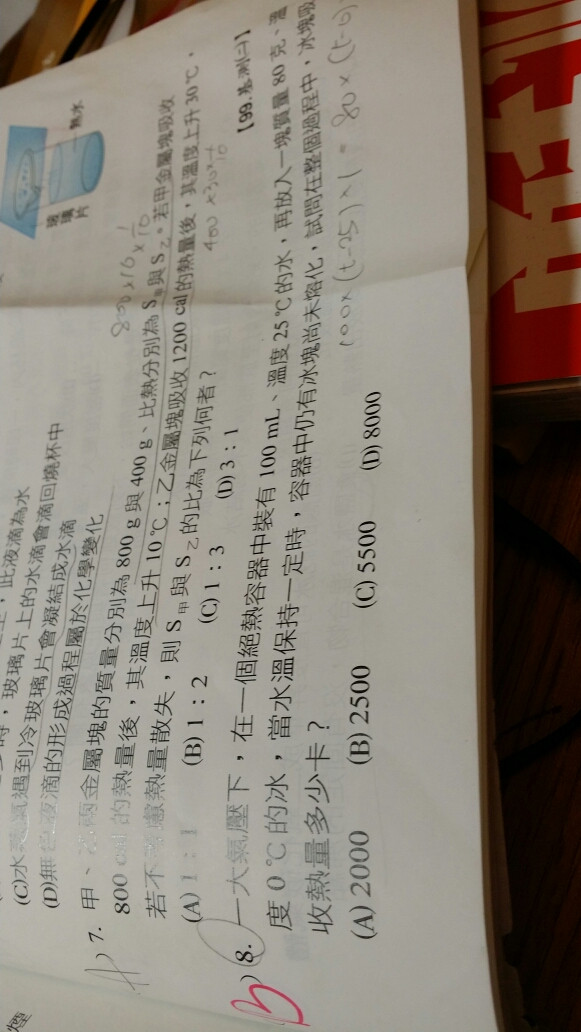 無水
玻璃片
上,此液滴為水
時,玻璃片上的水滴會滴回燒杯中
(C)水蒸氣遇到冷玻璃片會凝結成水滴
(D)無色液滴的形成過程屬於化學變化
800×10×1/10
7. 甲、乙兩金屬塊的質量分別為 800 g 與 400 g、比熱分別為 S甲與 S乙。若甲金屬塊吸收
800 cal 的熱量後,其溫度上升 10 ℃;乙金屬塊吸收 1200 cal 的熱量後,其溫度上升 30 ℃,
400×30×1/10
若不考慮熱量散失,則 S甲與 S乙的比為下列何者?
(A) 1:1 (B) 1:2 (C) 1:3 (D) 3:1 【99.基測(二)】
B
8. 一大氣壓下,在一個絕熱容器中裝有 100 mL、溫度 25 ℃的水,再放入一塊質量 80 克、溫
度 0 ℃的冰,當水溫保持一定時,容器中仍有冰塊尚未熔化,試問在整個過程中,冰塊吸
收熱量多少卡?
100×(t-25)×1=80×(t-0)
(A) 2000 (B) 2500 (C) 5500 (D) 8000